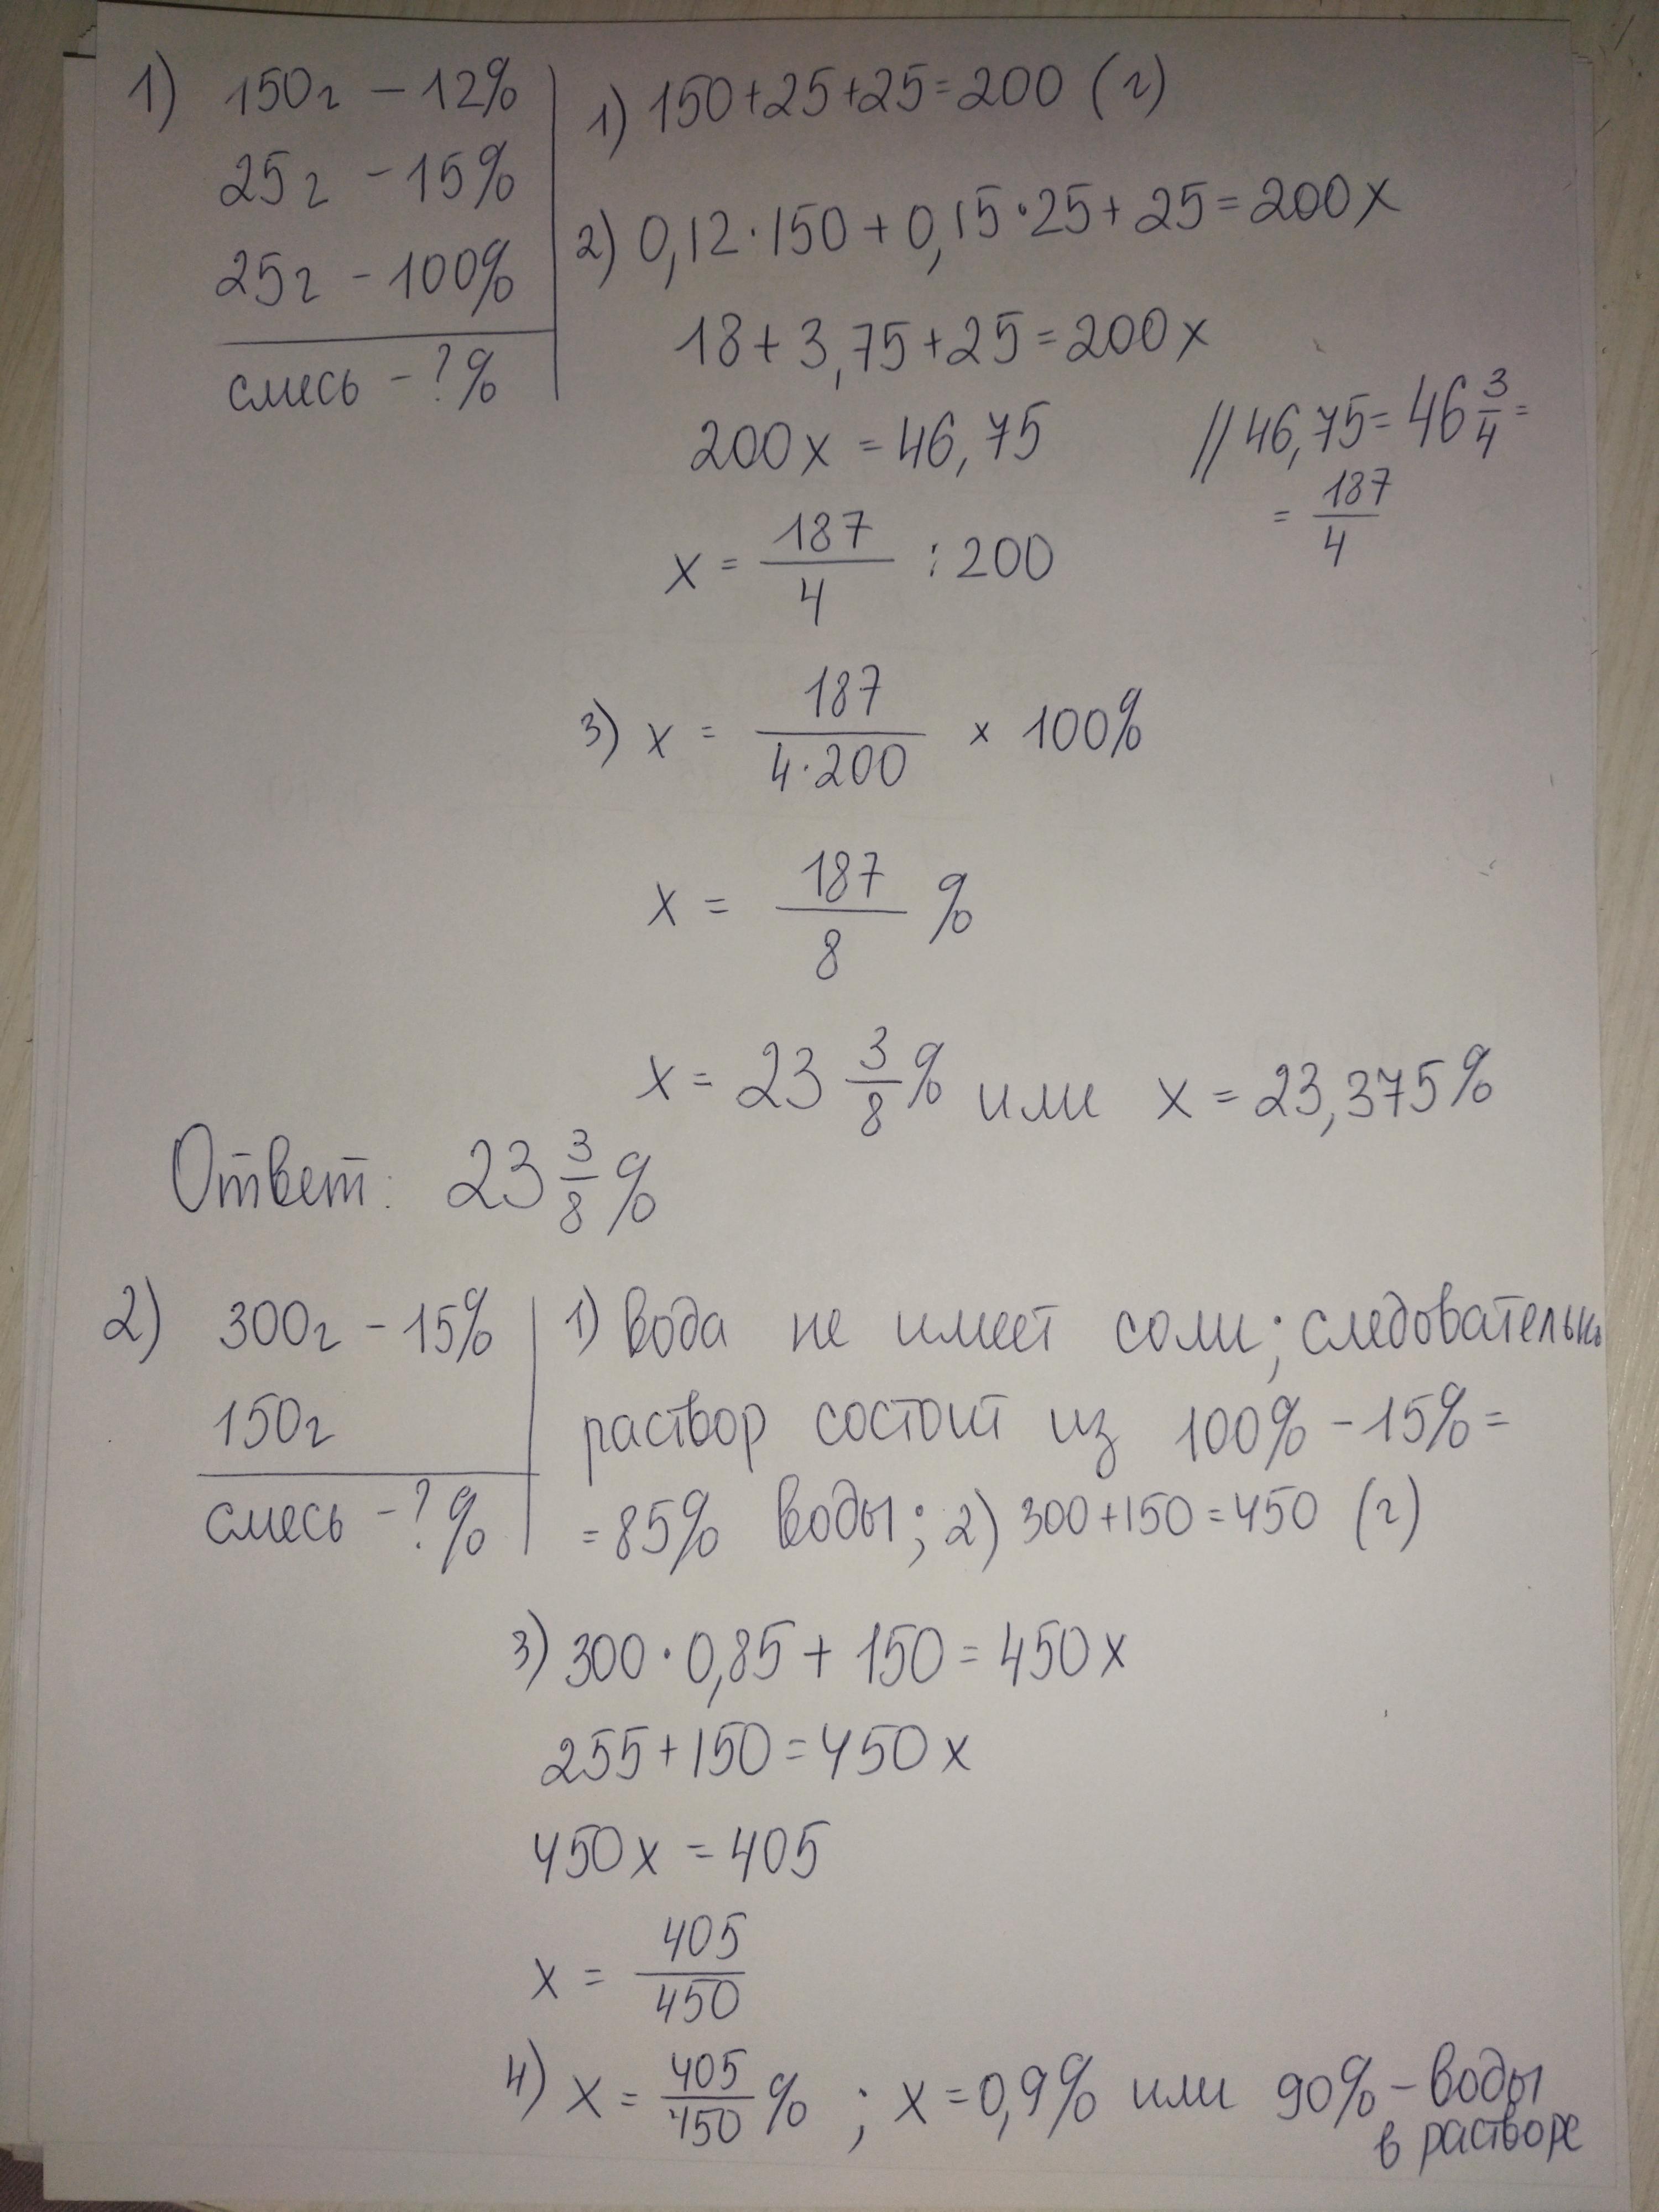 1) 150г – 12%
25г – 15%
25г – 100%
смесь – ? %
1) 150+25+25=200 (г)
2) 0,12·150+0,15·25+25=200x
18+3,75+25=200x
200x=46,75
// 46,75=46 3/4 =
= 187/4
x= 187/4 :200
3) x= 187/4·200 × 100%
x= 187/8 %
x=23 3/8 % или x=23,375%
Ответ: 23 3/8 %
2) 300г – 15%
150г
смесь – ? %
1) вода не имеет соли; следовательно
раствор состоит из 100% – 15%=
=85% воды; 2) 300+150=450 (г)
3) 300·0,85+150=450x
255+150=450x
450x=405
x= 405/450
4) x= 405/450 % ; x=0,9% или 90% – воды
в растворе